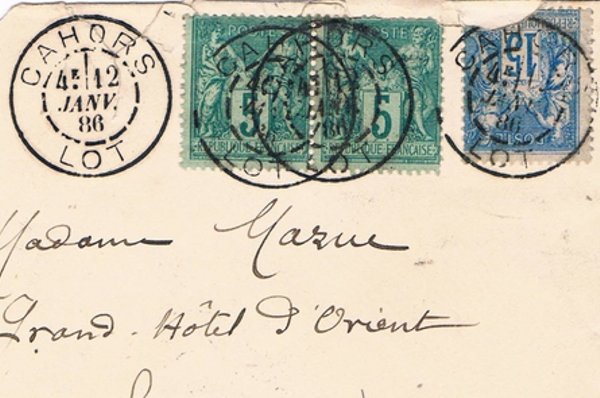 CAHORS
4E 12
JANV.
86
LOT
POSTE
5
5
REPUBLIQUE FRANÇAISE
REPUBLIQUE FRANÇAISE
CAHORS
86
LOT
15
86
LOT
Madame Mazue
Grand-Hôtel d'Orient